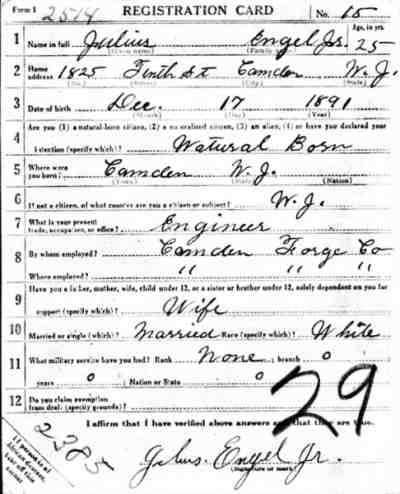 Form 1 2514 REGISTRATION CARD No. 15
1 Name in full Julius Engel Jr. Age, in yrs. 25
(Given name) (Family name)
2 Home address 1825 Tenth St Camden N.J.
(No.) (Street) (City) (State)
3 Date of birth Dec. 17 1891
(Month) (Day) (Year)
4 Are you (1) a natural-born citizen, (2) a naturalized citizen, (3) an alien, (4) or have you declared your
intention (specify which)? Natural Born
5 Where were you born? Camden N.J.
(Town) (State) (Nation)
6 If not a citizen, of what country are you a citizen or subject? N.J.
7 What is your present trade, occupation, or office? Engineer
8 By whom employed? Camden Forge Co
Where employed? " " "
9 Have you a father, mother, wife, child under 12, or a sister or brother under 12, solely dependent on you for
support (specify which)? Wife
10 Married or single (which)? Married Race (specify which)? White
11 What military service have you had? Rank None ; branch 0
years 0 ; Nation or State 0
12 Do you claim exemption from draft (specify grounds)?
I affirm that I have verified above answers and that they are true.
29
2385
Julius. Engel Jr.
If person is of African descent, tear off this corner